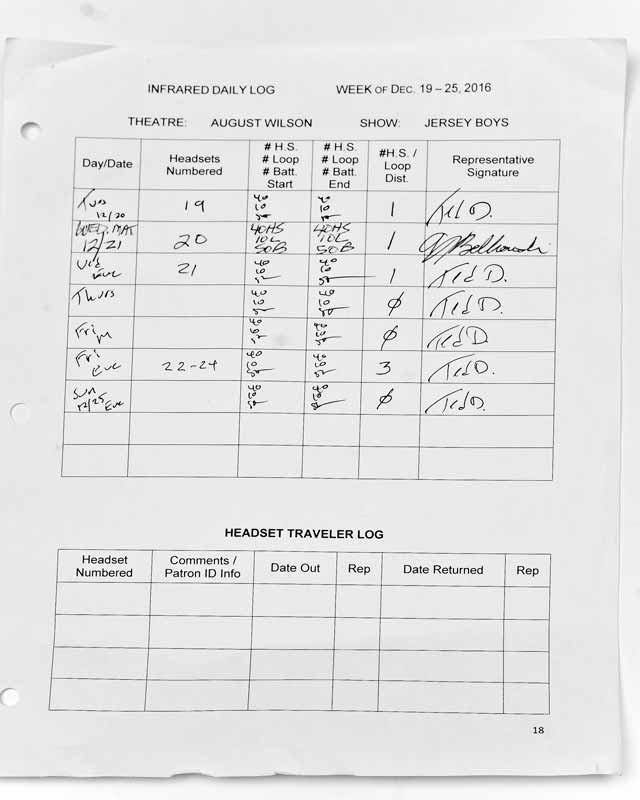 INFRARED DAILY LOG WEEK OF DEC. 19 – 25, 2016
THEATRE: AUGUST WILSON SHOW: JERSEY BOYS
Day/Date Headsets Numbered # H.S. # Loop # Batt. Start # H.S. # Loop # Batt. End #H.S. / Loop Dist. Representative Signature
Tues 12/20 19 40 10 50 40 10 50 1 Ted D.
WED. MAT 12/21 20 40HS 10L 50B 40HS 10L 50B 1
Wed Eve 21 40 10 40 10 1 Ted D.
Thurs 40 10 40 10 Ø Ted D.
Fri M 40 10 40 10 Ø Ted D
Fri Eve 22-24 40 10 40 10 3 Ted D.
Sun 12/25 Eve 40 10 40 10 Ø Ted D.
HEADSET TRAVELER LOG
Headset Numbered Comments / Patron ID Info Date Out Rep Date Returned Rep
18